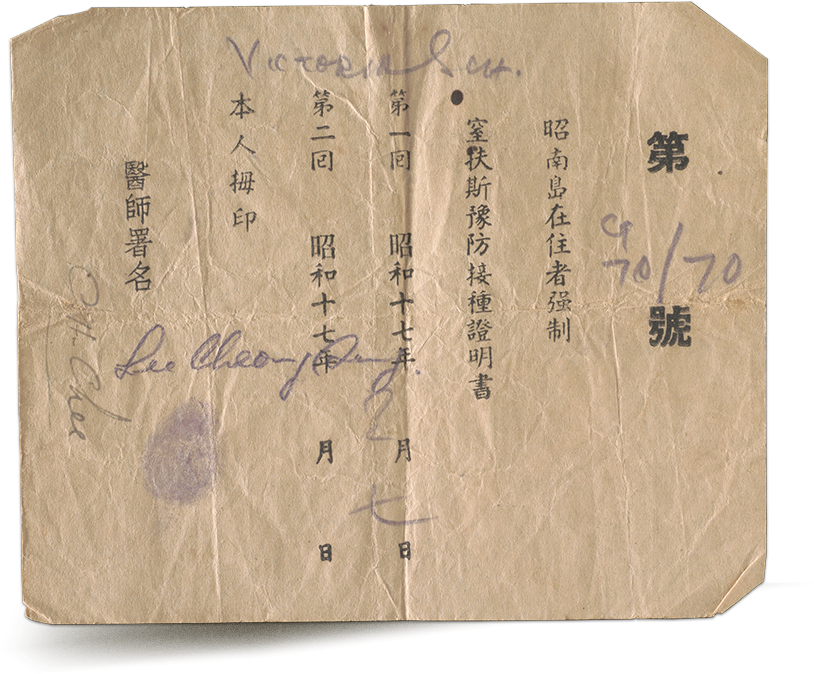 Victoria Sch.
第 70/70 號
昭南島在住者强制
窒扶斯豫防接種證明書
第一回 昭和十七年 月 七日
第二回 昭和十七年 月 日
本人拇印
Lee Cheong
醫師署名
Chee